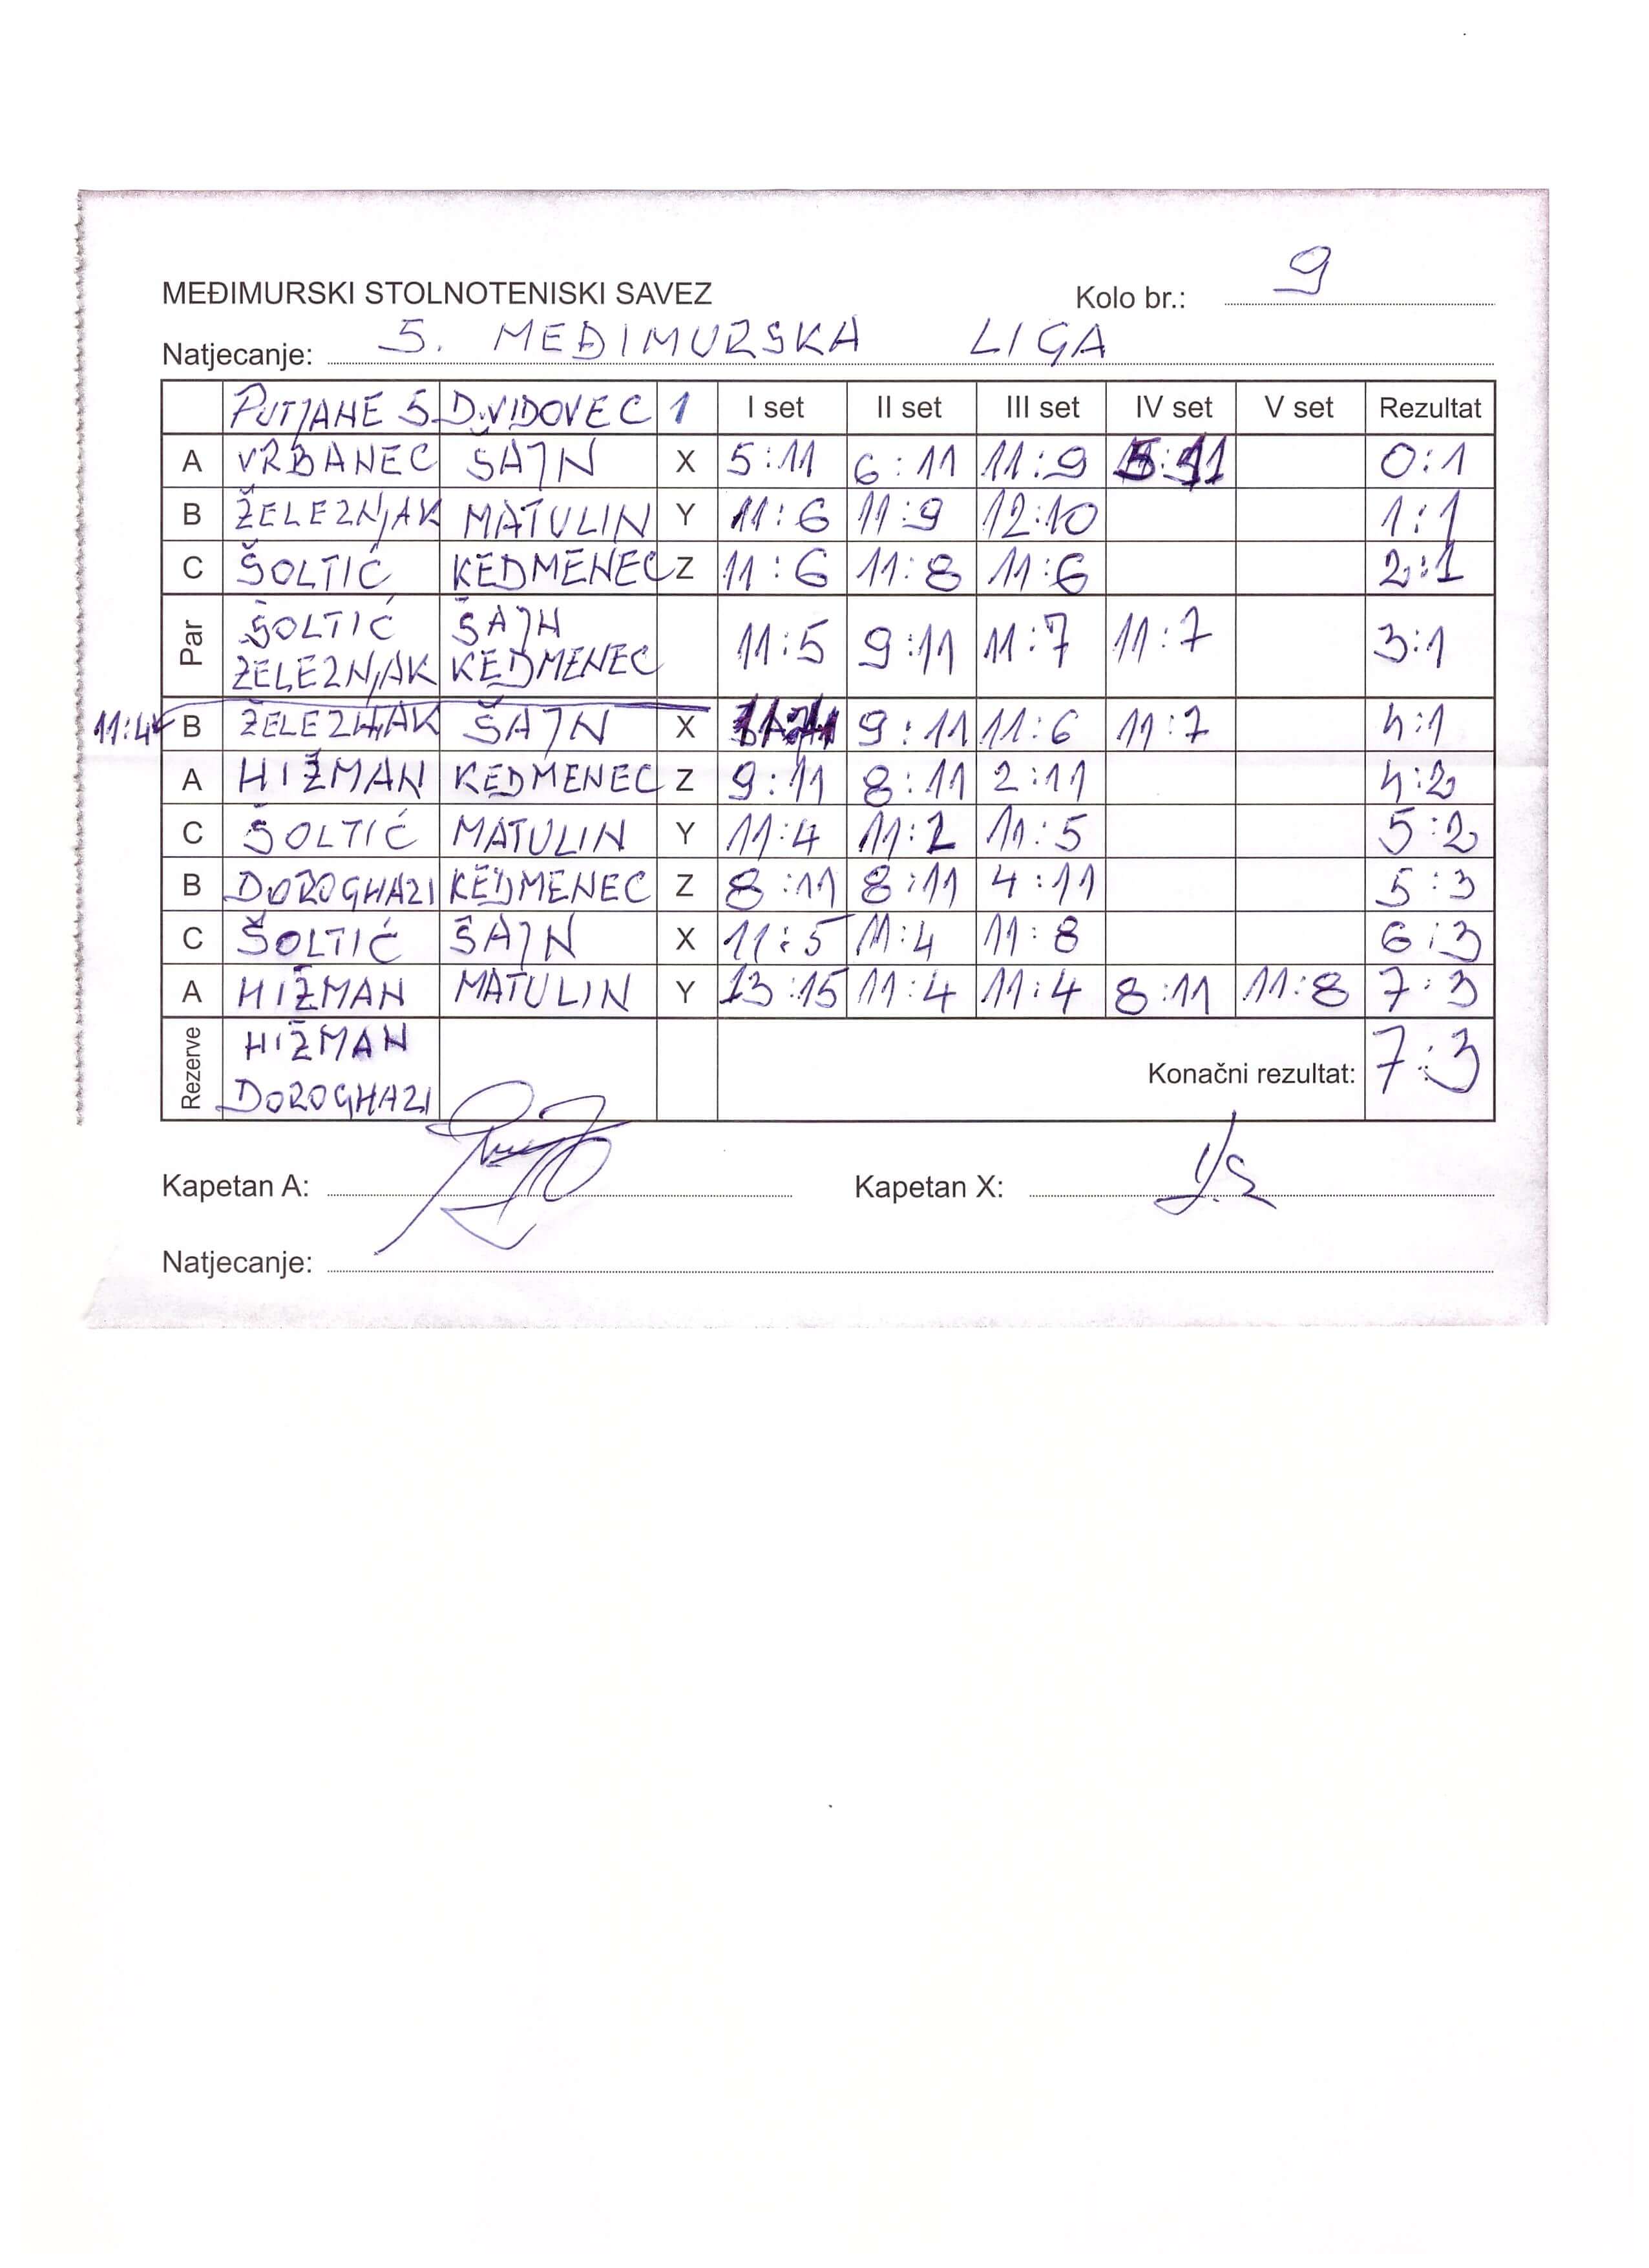 MEĐIMURSKI STOLNOTENISKI SAVEZ Kolo br.: 9
Natjecanje: 5. MEĐIMURSKA LIGA
PUTJANE 5 D.VIDOVEC 1 I set II set III set IV set V set Rezultat
A VRBANEC ŠAJN X 5:11 6:11 11:9 5:11 0:1
B ŽELEZNJAK MATULIN Y 11:6 11:9 12:10 1:1
C ŠOLTIĆ KEDMENEC Z 11:6 11:8 11:6 2:1
Par ŠOLTIĆ ŠAJN 11:5 9:11 11:7 11:7 3:1
ŽELEZNJAK KEDMENEC
11:4 B ŽELEZNJAK ŠAJN X 9:11 11:6 11:7 4:1
A HIŽMAN KEDMENEC Z 9:11 8:11 2:11 4:2
C ŠOLTIĆ MATULIN Y 11:4 11:2 11:5 5:2
B DOROGHAZI KEDMENEC Z 8:11 8:11 4:11 5:3
C ŠOLTIĆ ŠAJN X 11:5 11:4 11:8 6:3
A HIŽMAN MATULIN Y 13:15 11:4 11:4 8:11 11:8 7:3
Rezerve HIŽMAN Konačni rezultat: 7:3
DOROGHAZI
Kapetan A: Kapetan X:
Natjecanje: